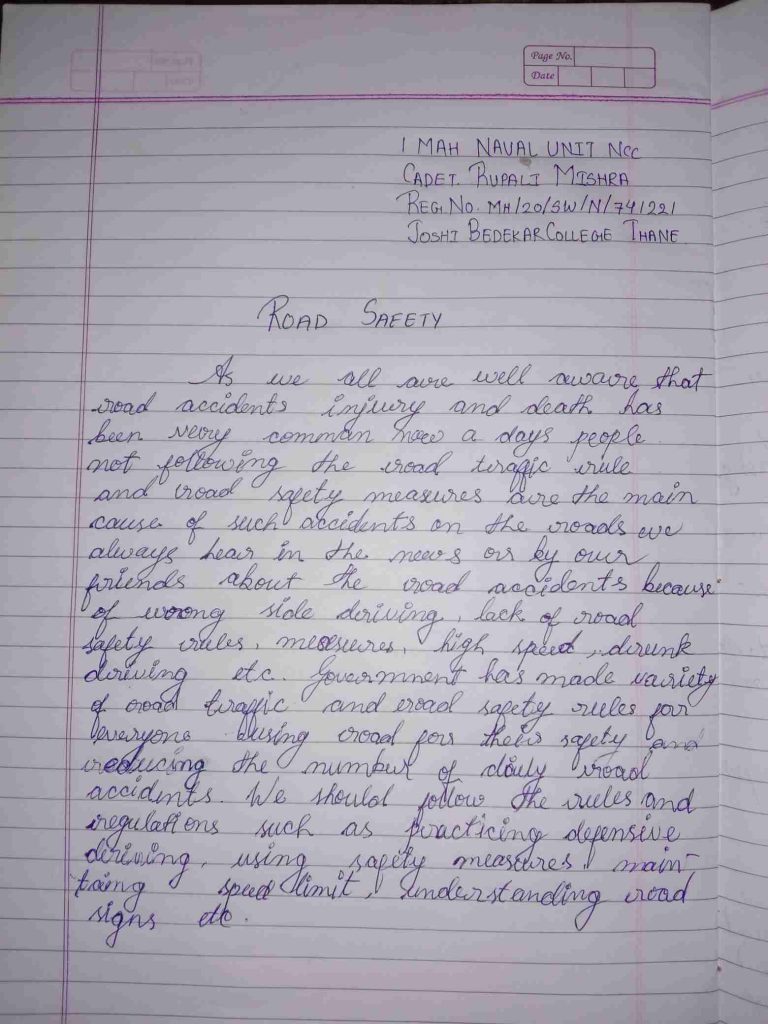 Page No.
Date
1 MAH NAVAL UNIT NCC
CADET. RUPALI MISHRA
REG. NO. MH/20/SW/N/741221
JOSHI BEDEKAR COLLEGE THANE
ROAD SAFETY
As we all are well aware that
road accidents injury and death has
been very comman now a days people
not following the road traffic rule
and road safety measures are the main
cause of such accidents on the roads we
always hear in the news or by our
friends about the road accidents because
of wrong side driving, lack of road
safety rules, measures, high speed, drunk
driving etc. Government has made variety
of road traffic and road safety rules for
everyone using road for their safety and
reducing the number of daily road
accidents. We should follow the rules and
regulations such as practicing defensive
driving, using safety measures, main-
taing speed limit, understanding road
signs etc.